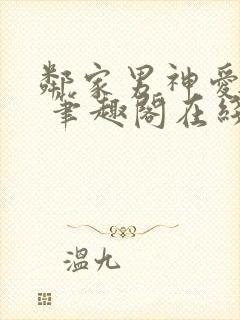 鄰家男神愛
筆趣閣在線
溫九